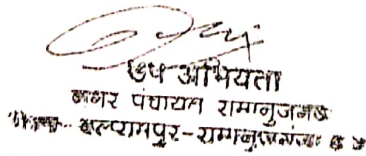 उप अभियंता
नगर पंचायत रामानुजगंज
बलरामपुर-रामानुजगंज